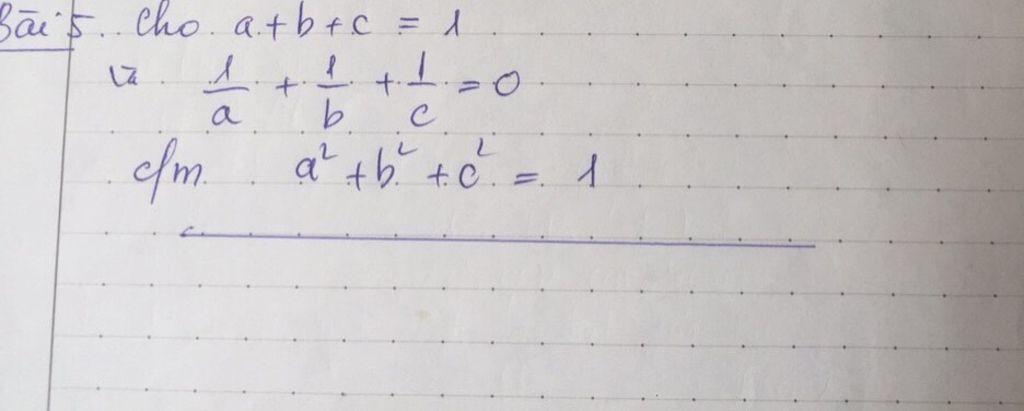 Bài 5. Cho a + b + c = 1
và 1/a + 1/b + 1/c = 0
c/m a² + b² + c² = 1